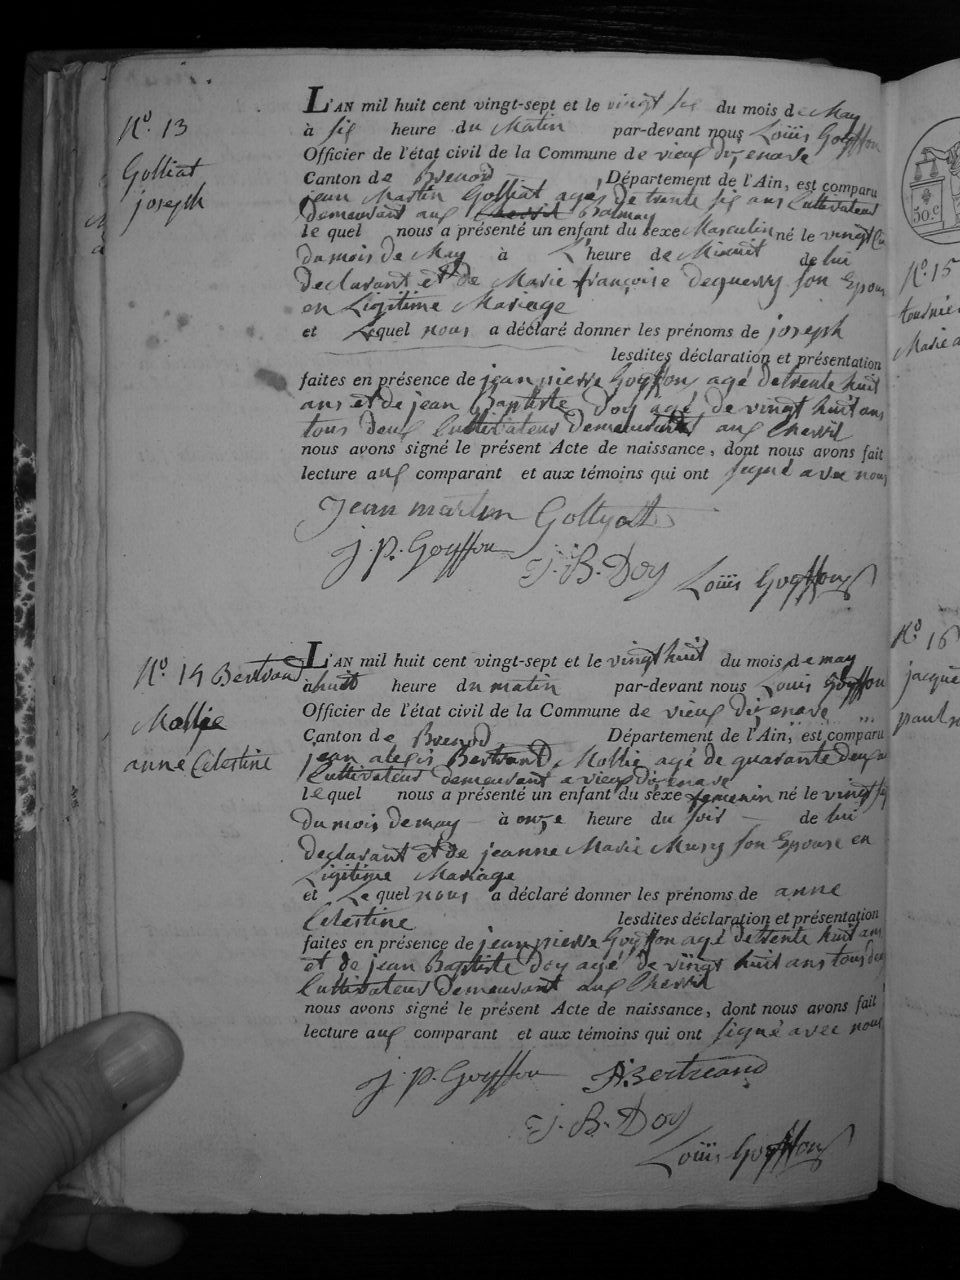 N.° 13
Golliat
joseph
L'AN mil huit cent vingt-sept et le vingt six du mois de May
à six heure du Matin par-devant nous Loüis Goyffon
Officier de l'état civil de la Commune de vieux dizenave
Canton de Brenod Département de l'Ain, est comparu
jean Martin Golliat agé de trente six ans Cultivateur
demeurant aux Balmay
le quel nous a présenté un enfant du sexe Masculin né le vingt
du mois de May à L'heure de Minuit de lui
declarant et de Marie françoise dequerry son Epouse
en Ligitime Mariage
et Lequel nous a déclaré donner les prénoms de joseph
lesdites déclaration et présentation
faites en présence de jean pierre Goyffon agé de trente huit
ans et de jean Baptiste Doy agé de vingt huit ans
tous deux Cultivateurs demeurant aux Chevril
nous avons signé le présent Acte de naissance, dont nous avons fait
lecture aux comparant et aux témoins qui ont signé avec nous
Jean martin Gollyat
J. P. Goyffon
J. B. Doy
Loüis Goyffon
N.° 14 Bertrand
Mollie
anne Celestine
L'AN mil huit cent vingt-sept et le vingt huit du mois de may
à huit heure du matin par-devant nous Louis Goyffon
Officier de l'état civil de la Commune de vieux dizenave
Canton de Brenod Département de l'Ain, est comparu
jean alexis Bertrand Mollie agé de quarante deux
Cultivateur demeurant a vieux dizenave
le quel nous a présenté un enfant du sexe femenin né le vingt
du mois de may à onze heure du soir de lui
declarant et de jeanne Marie Mury son Epouse en
Ligitime Mariage
et Le quel nous a déclaré donner les prénoms de anne
Celestine lesdites déclaration et présentation
faites en présence de jean pierre Goyffon agé de trente huit ans
et de jean Baptiste doy agé de vingt huit ans tous deux
Cultivateurs demeurant aux Chevril
nous avons signé le présent Acte de naissance, dont nous avons fait
lecture aux comparant et aux témoins qui ont signé avec nous
J. P. Goyffon A. Bertreand
J. B. Doy
Loüis Goyffon
50.c
N.° 15
Marie
N.° 16
jacque
paul